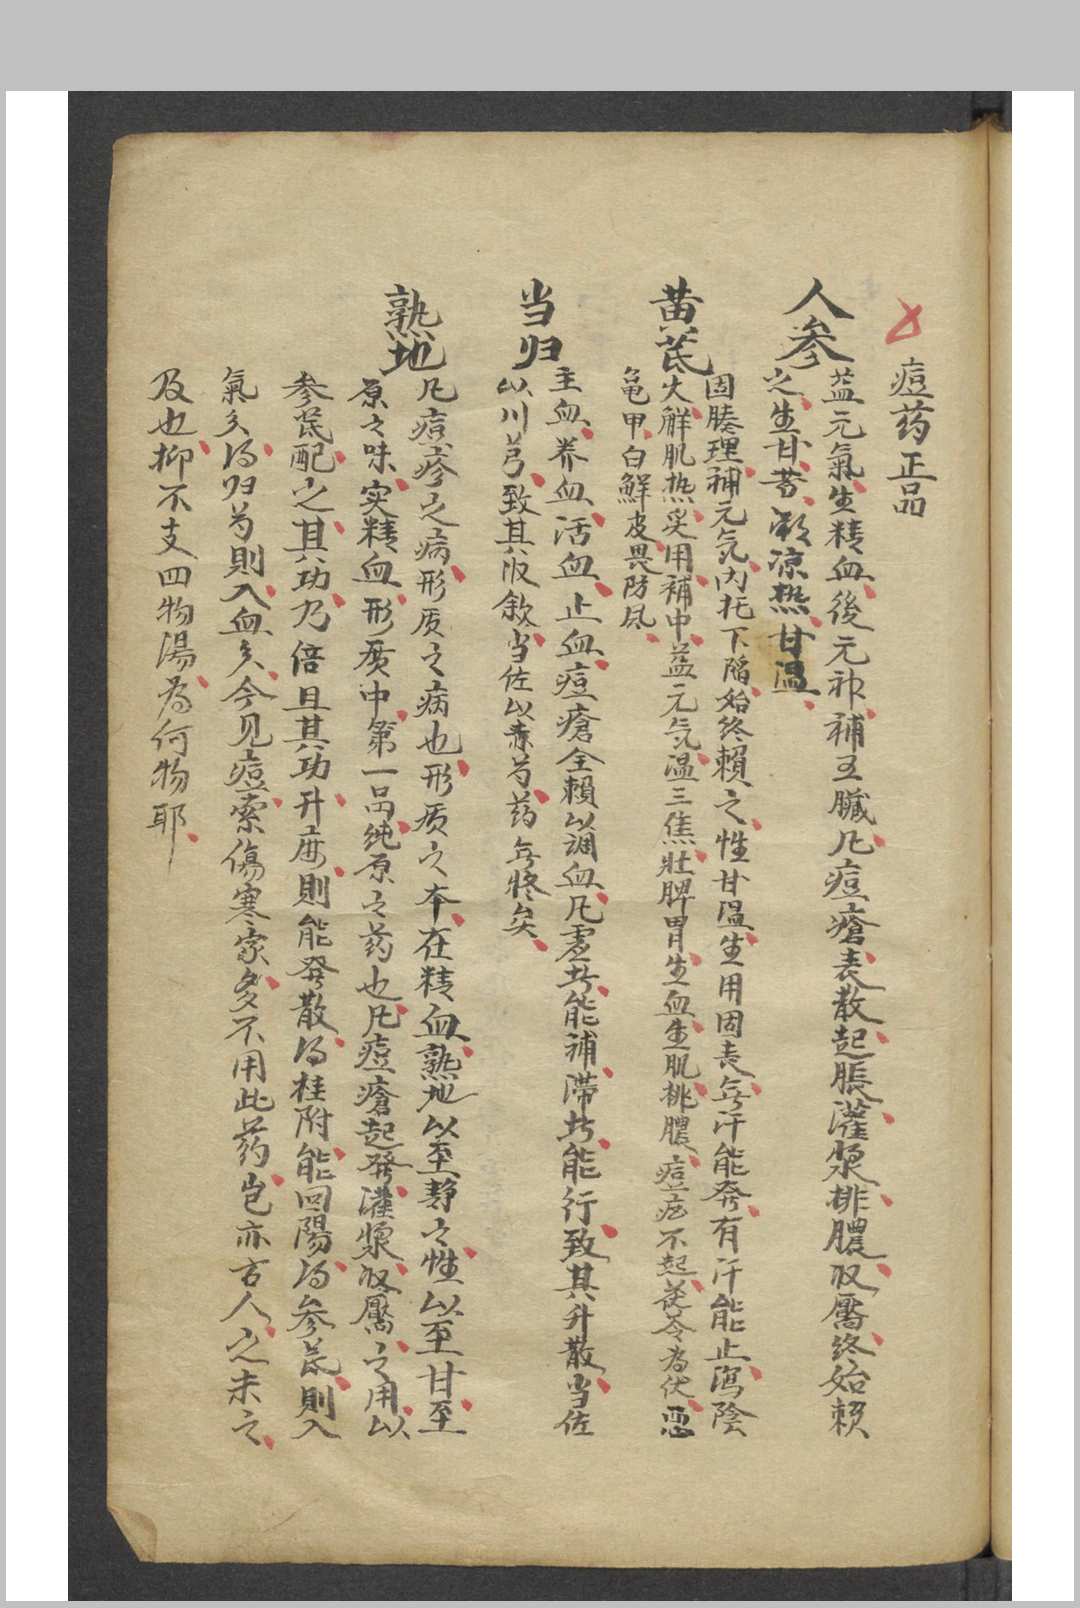 痘药正品
人参
益元氣生精血後元神補五臟凡痘瘡表散起脹灌漿排膿收靨終始賴
之生甘苦微凉熟甘温
黄芪
固腠理補元気内托下陷始终賴之性甘温生用固表無汗能發有汗能止瀉陰
火解肌热炙用補中益元气温三焦壮脾胃生血生肌排膿痘症不起茯苓為使恶
龟甲白鮮皮畏防风
当归
主血养血活血止血痘瘡全賴以調血凡虚者能補滞者能行致其升散当佐
以川芎致其收敛当佐以赤芍药無遗矣
熟地
凡痘疹之病形质之病也形质之本在精血熟地以至静之性以至甘至
厚之味实精血形质中第一品纯厚之药也凡痘瘡起發灌漿收靨之用以
参芪配之其功乃倍且其功升麻則能發散得桂附能回陽得参芪則入
氣分得归芍則入血分今见痘家傷寒家多不用此药岂亦古人之未之
及也抑不支四物湯為何物耶